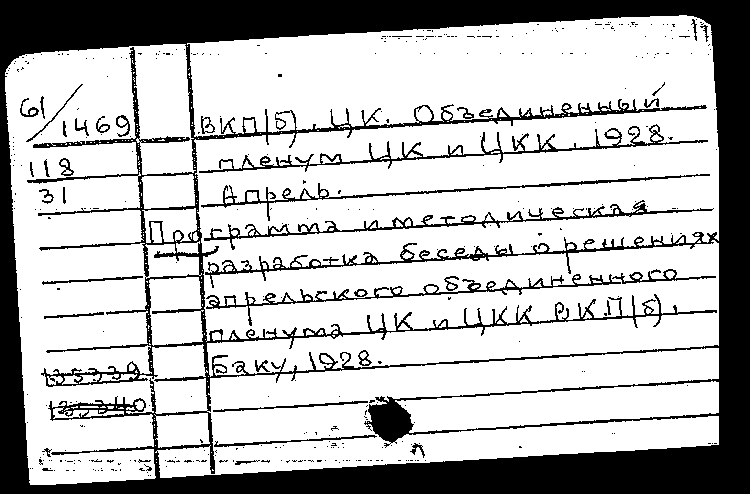 61/1469 ВКП(б). ЦК. Объединенный
118 пленум ЦК и ЦКК. 1928.
31 Апрель.
Программа и методическая
разработка беседы о решениях
апрельского объединенного
пленума ЦК и ЦКК ВКП(б).
135339 Баку, 1928.
135340